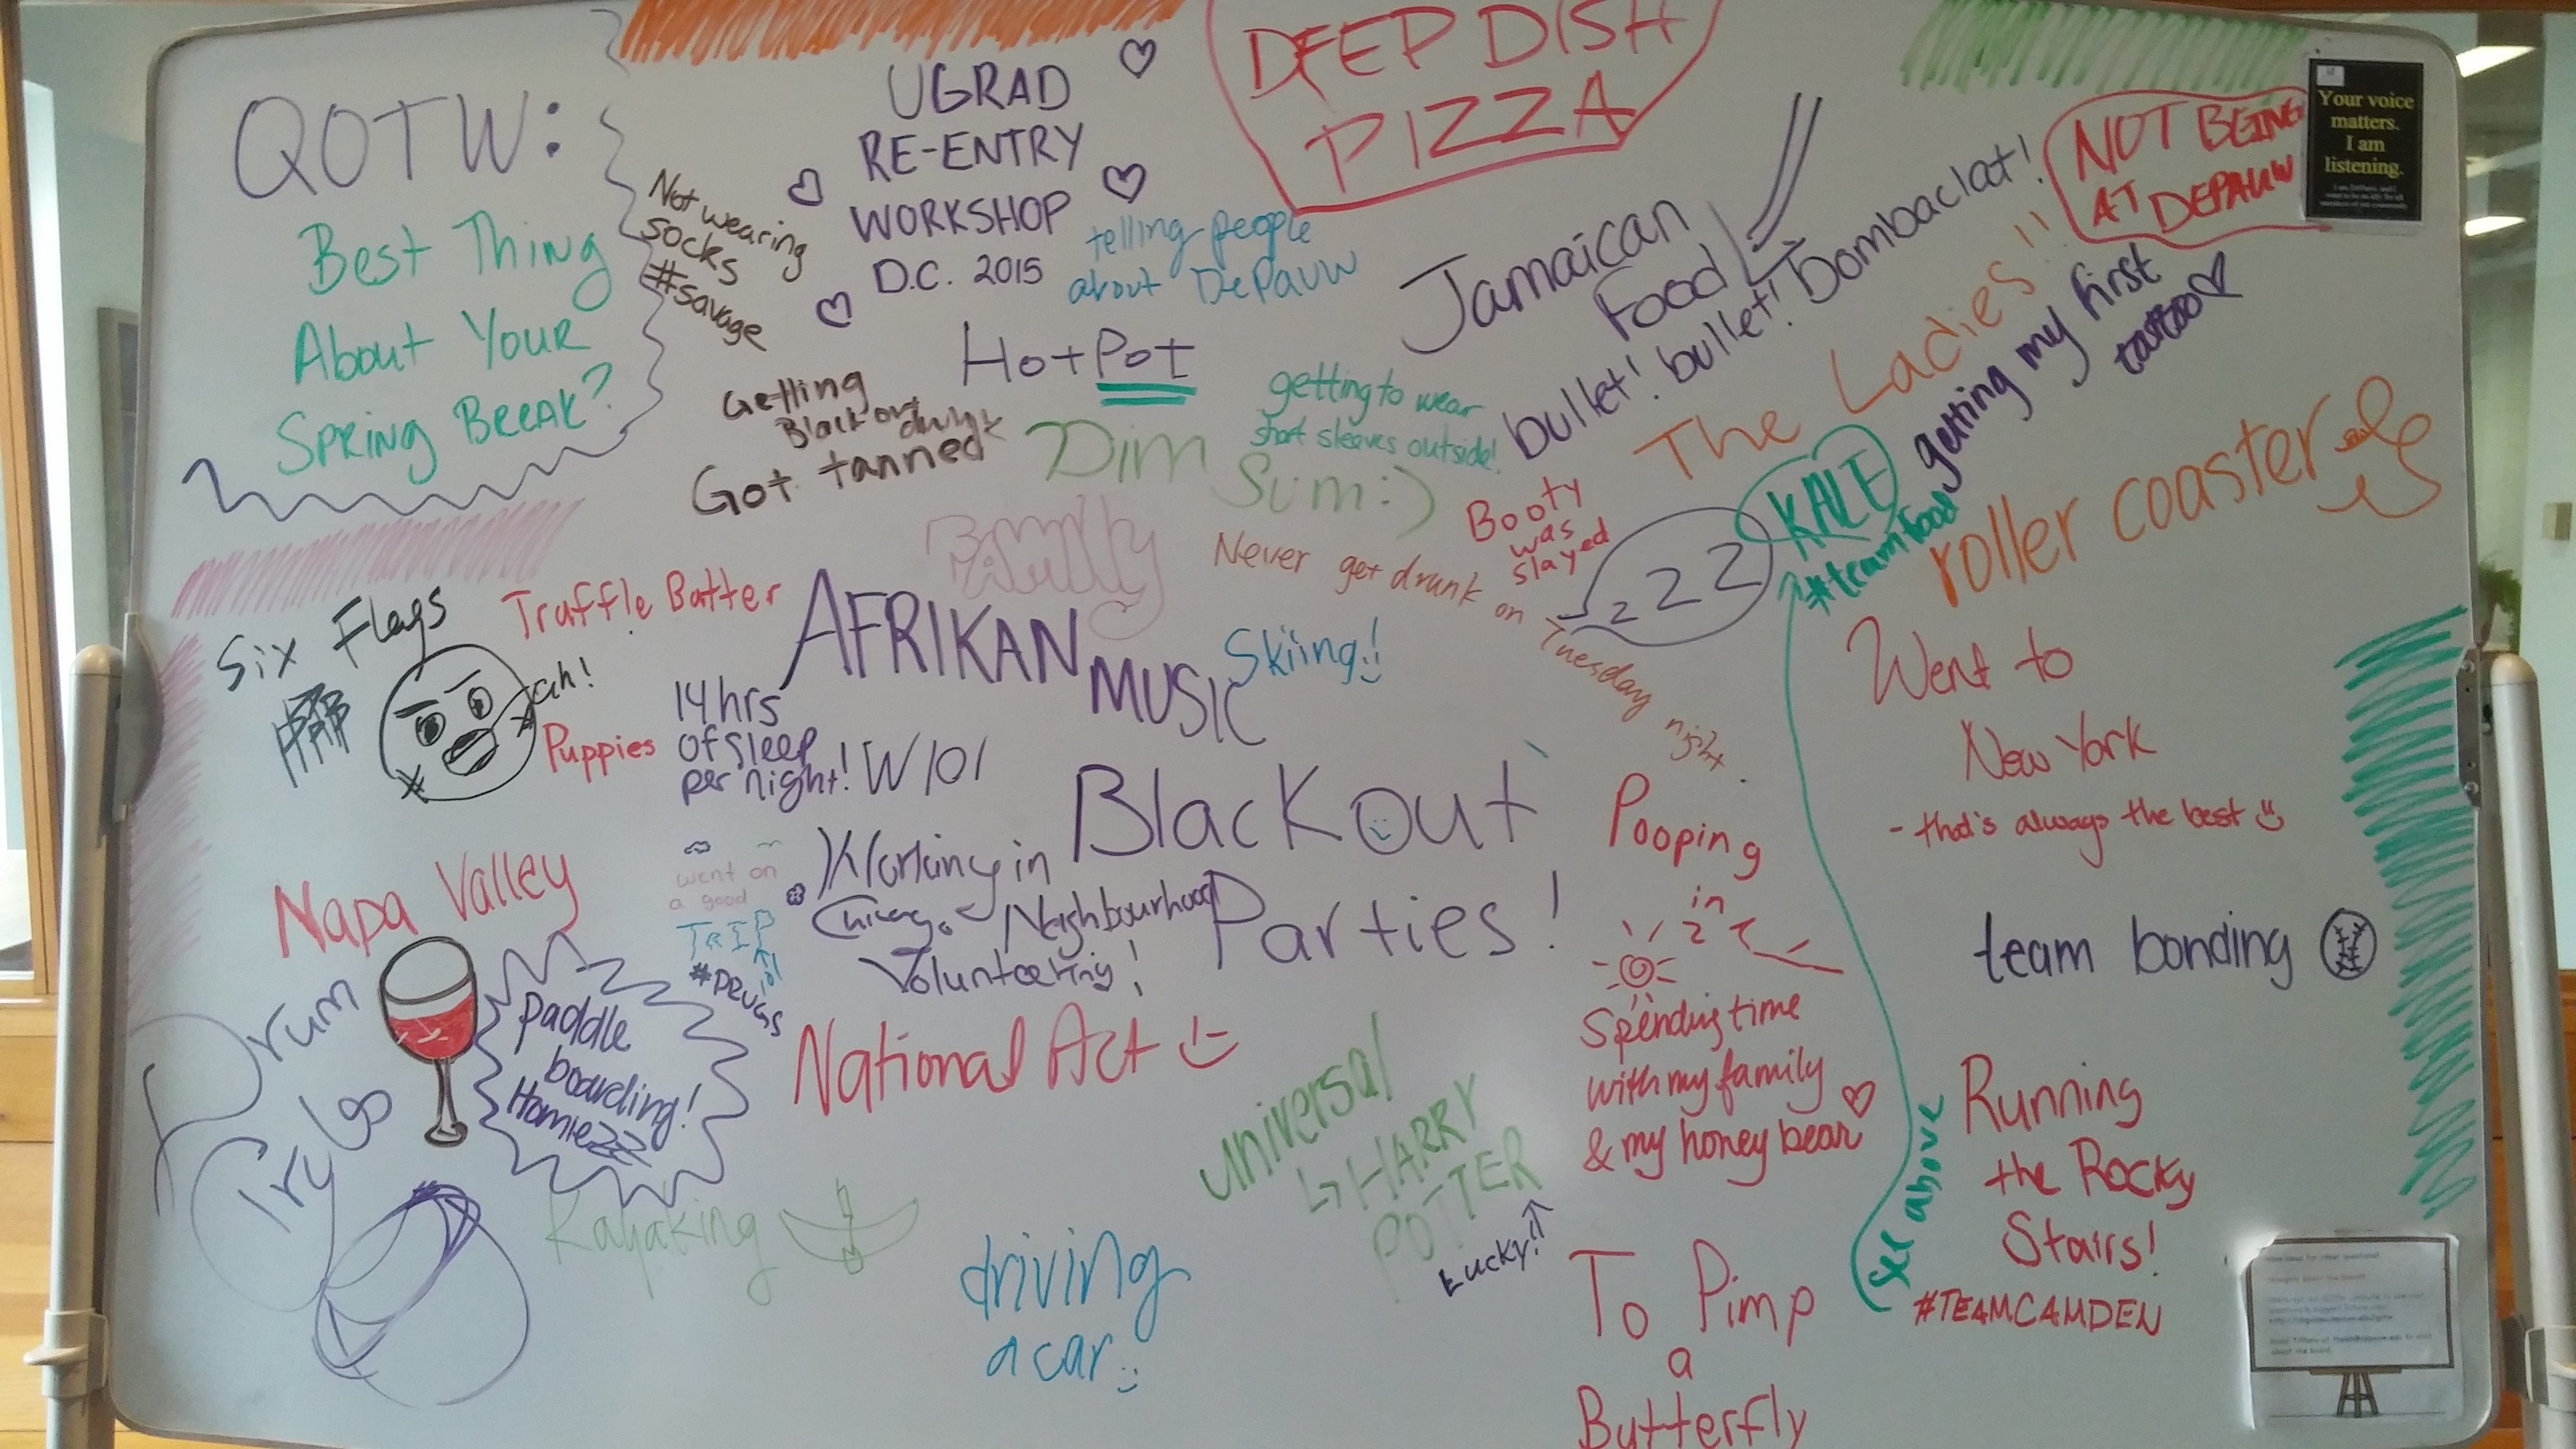 QOTW:
Best Thing
About Your
Spring Break?
UGRAD
RE-ENTRY
WORKSHOP
D.C. 2015
DEEP DISH
PIZZA
Your voice
matters.
I am
listening.
NOT BEING
AT DEPAUW
Not wearing
socks
#savage
telling people
about DePauw
Jamaican
Food
bullet! bullet! Bombaclat!
The Ladies!!
getting my first
tattoo
HotPot
Getting
Blackout
drunk
Got tanned
getting to wear
short sleeves outside!
Dim
Sum:)
Booty
was
slayed
KALE
#teamfood
roller coaster
FAMILY
Never get drunk on
Tuesday night.
zzZ
Six Flags
ah!
Truffle Batter
Puppies
AFRIKAN
MUSIC
Skiing!
14 hrs
of sleep
per night!
Went to
New York
- that's always the best
Blackout
Parties!
Pooping
in
Working in
Chicago
Neighbourhood
Volunteering!
went on
a good
TRIP
lol
#DRUGS
Napa Valley
team bonding
Drum
Try
paddle
boarding!
Homiezzz
National Act
universal
HARRY
POTTER
Lucky!!
Spending time
with my family
& my honey bear
see above
Running
the Rocky
Stairs!
#TEAMCAMDEN
Kayaking
driving
a car
To Pimp
a
Butterfly